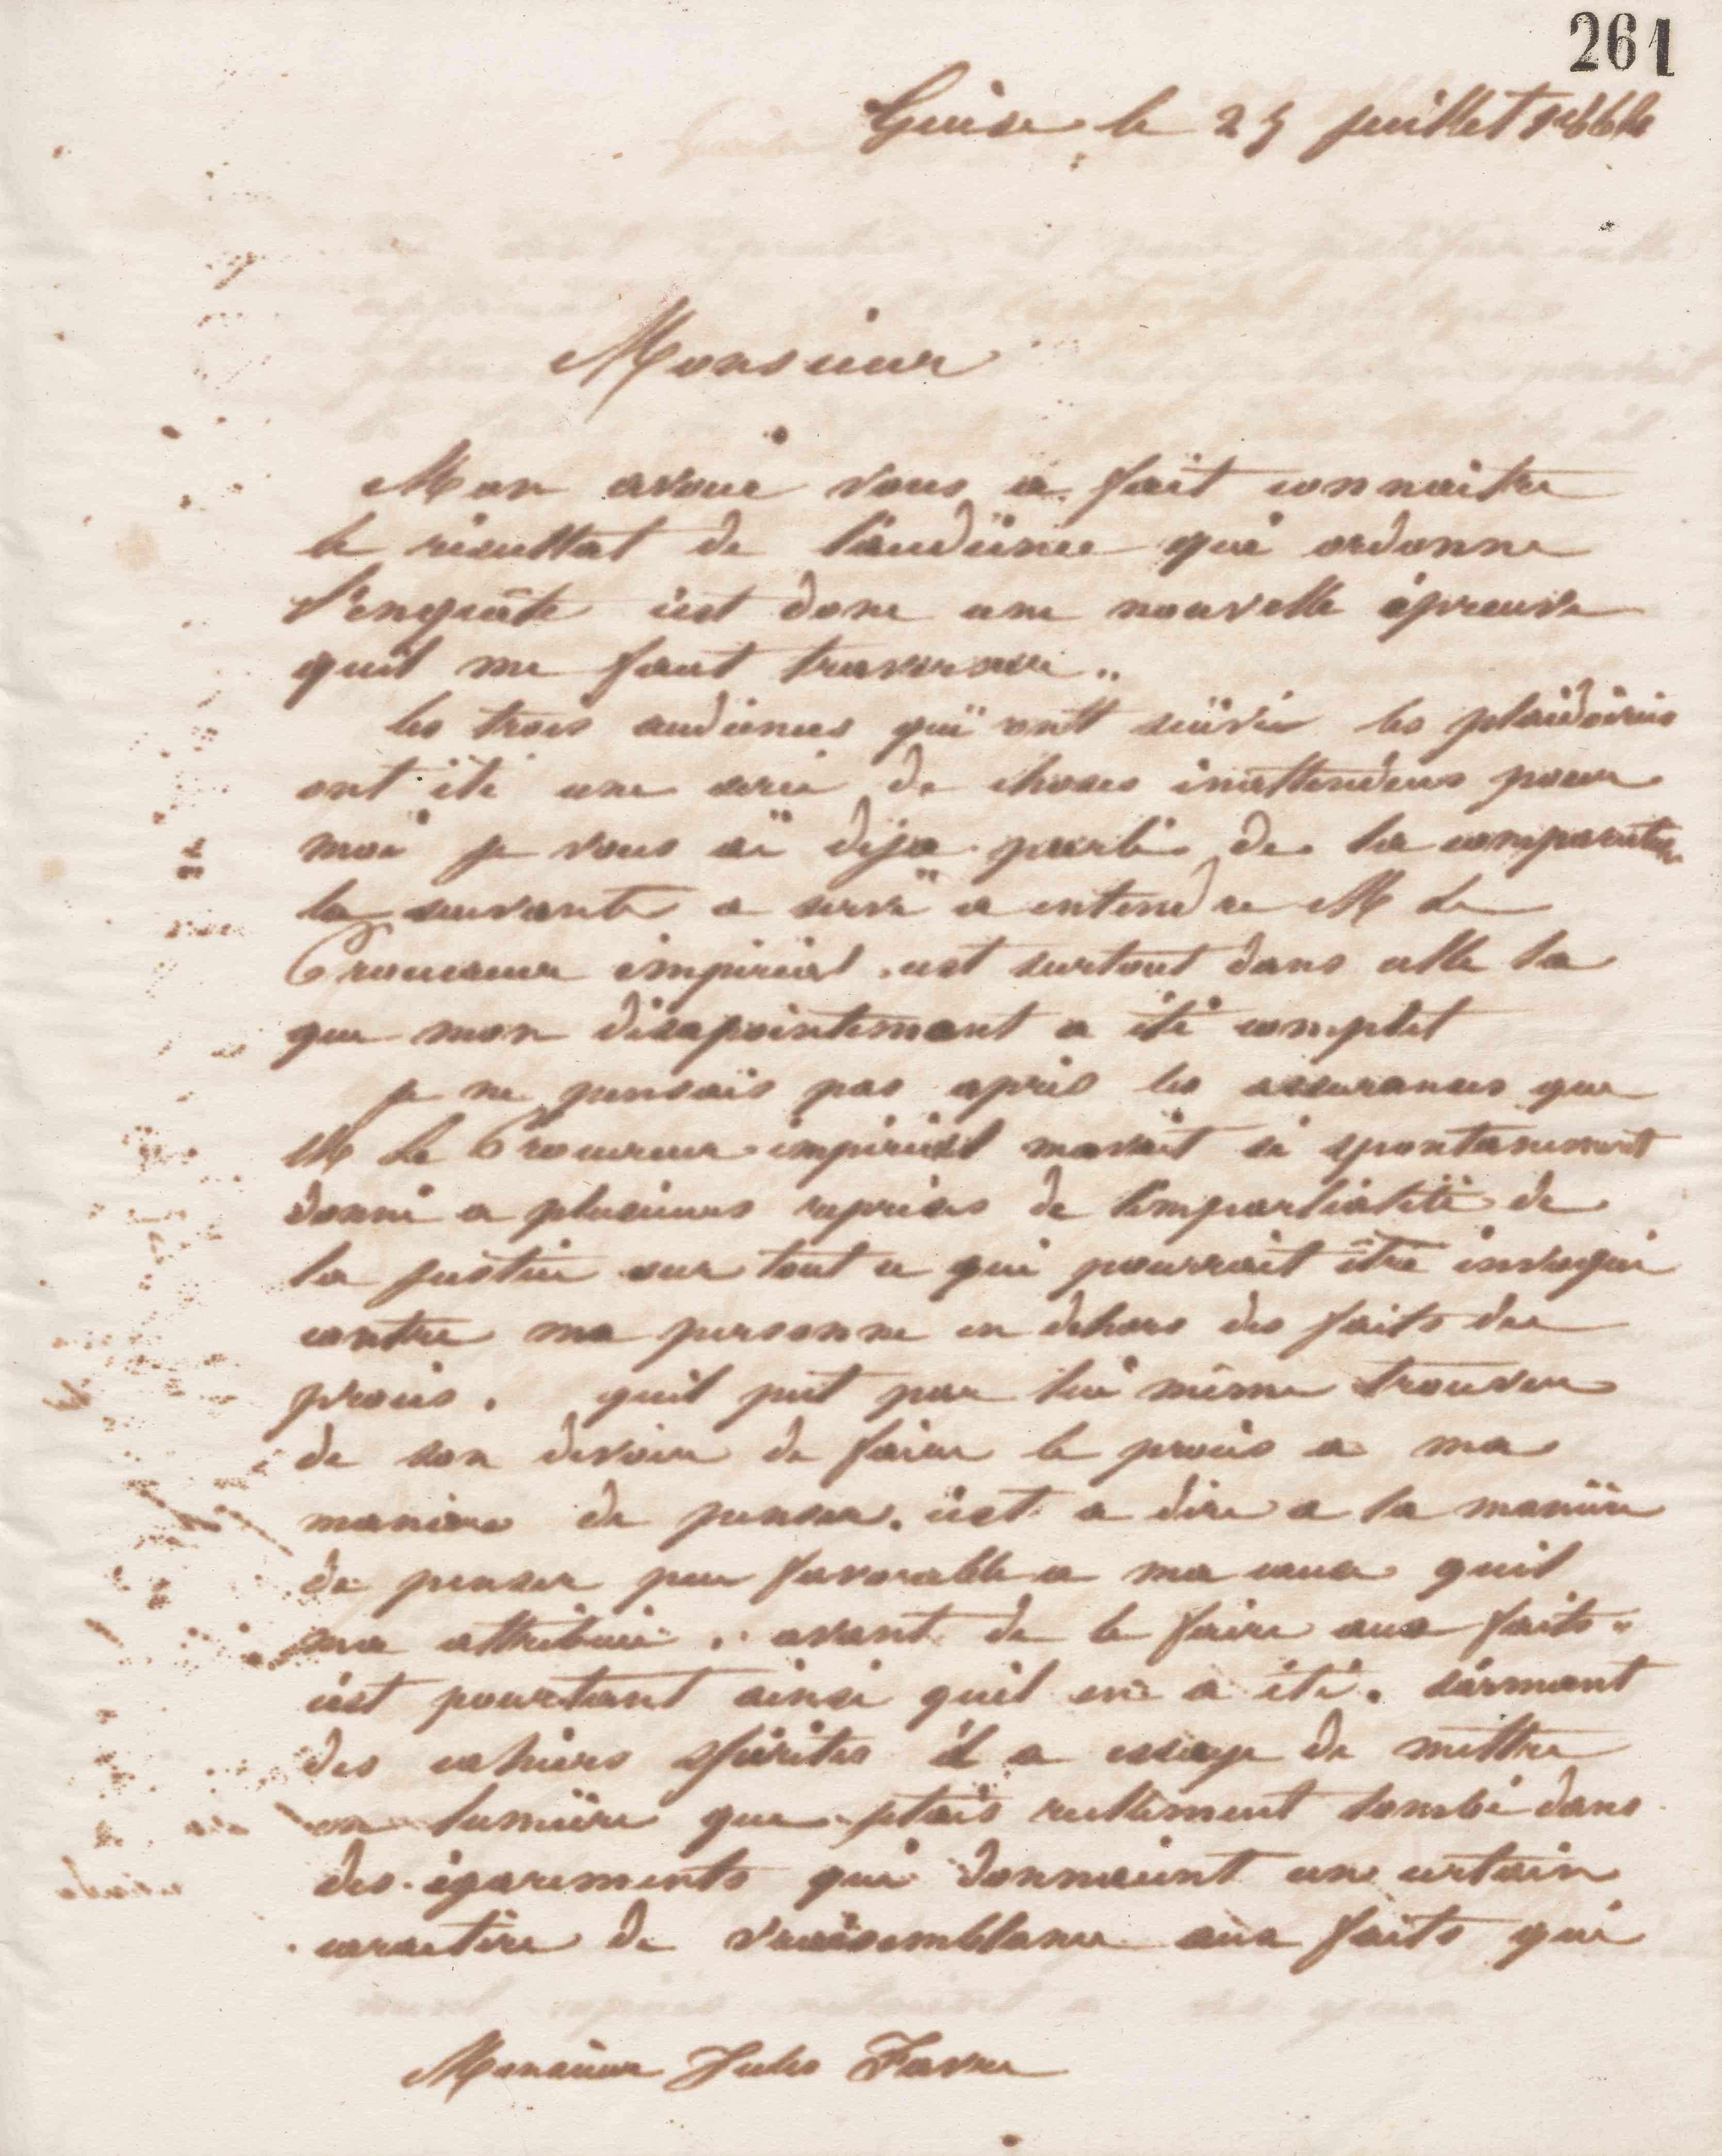 261
Guise le 25 juillet 1864
Monsieur
Mon avoué vous a fait connaitre
le résultat de l'audience qui ordonne
l'enquête c'est donc une nouvelle épreuve
quil me faut traverser.
les trois audiences qui ont suivie les plaidoiries
ont été une serie de choses inattendues pour
moi je vous ai déja parlé de la comparution
la suivante a servi a entendre M Le
Procureur impérial. cest surtout dans celle la
que mon désapointement a été complet
je ne pensais pas après les assurances que
M Le Procureur impérial mavait si spontanement
donné a plusieurs reprises de limpartialité de
la justice sur tout ce qui pourrait être invoqué
contre ma personne en dehors des faits du
procès. quil put par lui même trouver
de son devoir de faire le procès a ma
maniere de penser. c'est a dire a la manière
de penser peu favorable a ma cause quil
ma attribuée. avant de le faire aux faits.
c'est pourtant ainsi quil en a été. s'armant
des cahiers spirites il a essayé de mettre
en lumière que j'étais réellement tombé dans
des égarements qui donnaient un certain
caractère de vraisemblance aux faits qui
Monsieur Jules Favre